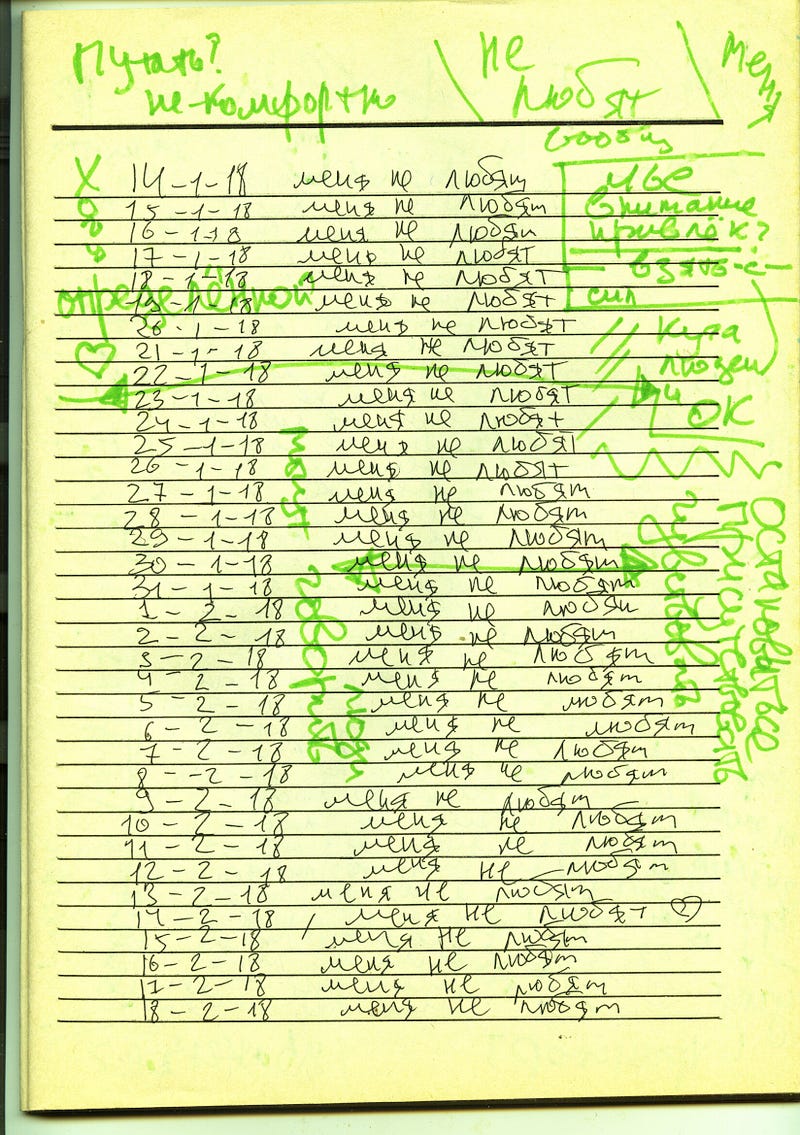 Пугать?
не-комфортно
не
любят
меня
14-1-18 меня не любят
15-1-18 меня не любят
16-1-18 меня не любят
17-1-18 меня не любят
18-1-18 меня не любят
19-1-18 меня не любят
20-1-18 меня не любят
21-1-18 меня не любят
22-1-18 меня не любят
23-1-18 меня не любят
24-1-18 меня не любят
25-1-18 меня не любят
26-1-18 меня не любят
27-1-18 меня не любят
28-1-18 меня не любят
29-1-18 меня не любят
30-1-18 меня не любят
31-1-18 меня не любят
1-2-18 меня не любят
2-2-18 меня не любят
3-2-18 меня не любят
4-2-18 меня не любят
5-2-18 меня не любят
6-2-18 меня не любят
7-2-18 меня не любят
8-2-18 меня не любят
9-2-18 меня не любят
10-2-18 меня не любят
11-2-18 меня не любят
12-2-18 меня не любят
13-2-18 меня не любят
14-2-18 / меня не любят
15-2-18 меня не любят
16-2-18 меня не любят
17-2-18 меня не любят
18-2-18 меня не любят
определённой
внимание
привлёк?
взять-с-
сил
людей
и ОК
люди
говорить
чувствовать
присутствовать